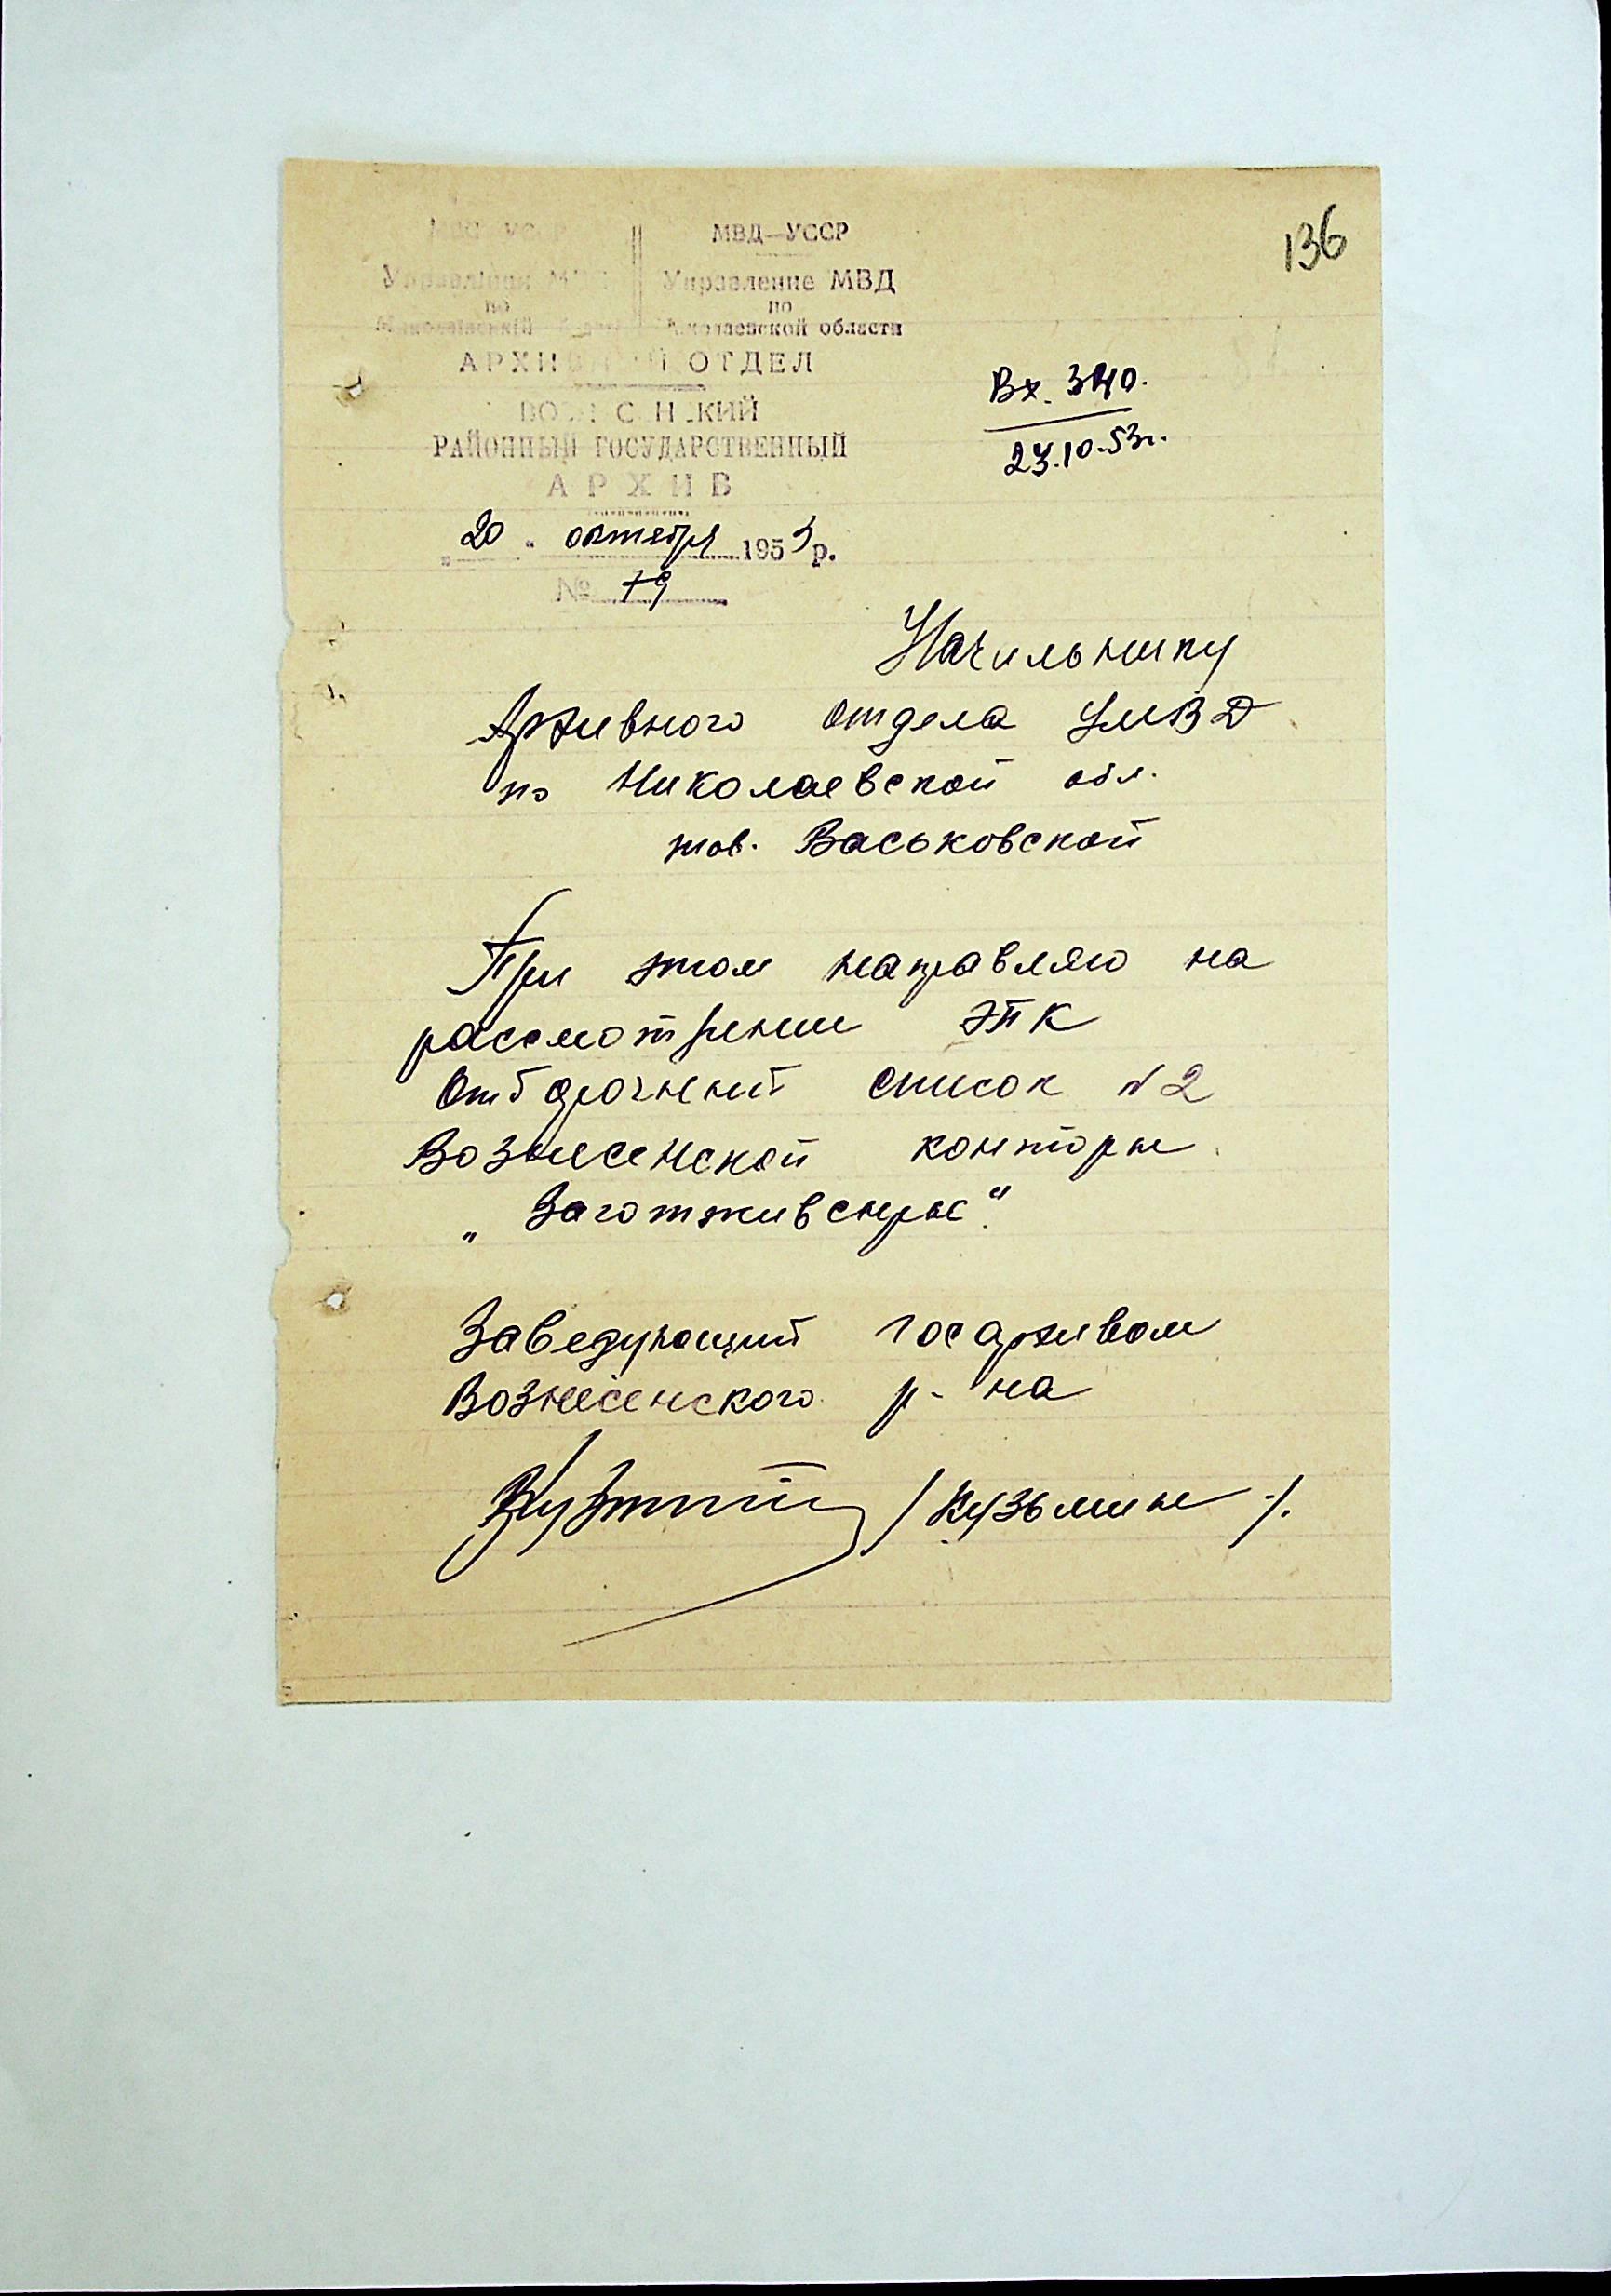 136
МВД—УССР
Управление МВД
по
по
Николаевской области
АРХИВНЫЙ ОТДЕЛ
ВОЗНЕСЕНСКИЙ
РАЙОННЫЙ ГОСУДАРСТВЕННЫЙ
АРХИВ
„20“ октября 1953 р.
№ 79
Вх. 340.
23.10.53г.
Начальнику
Архивного отдела УМВД
по Николаевской обл.
тов. Васьковской
При этом направляю на
рассмотрение ЭПК
Отборочный список №2
Вознесенской конторы
„Заготживсырье“.
Заведующий госархивом
Вознесенского р-на
/Кузьмин/.